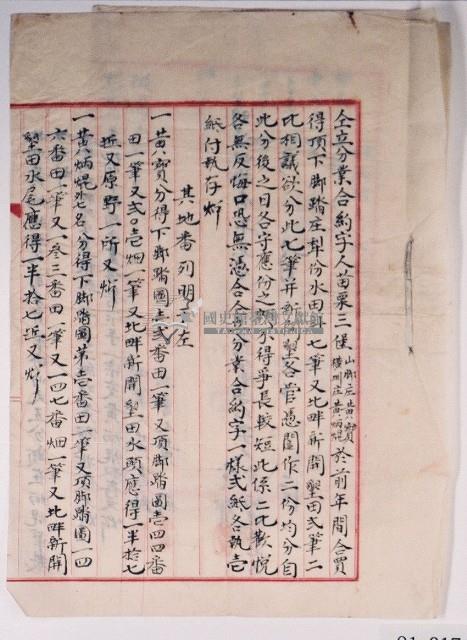 仝立分業合約字人苗栗三保山脚庄黄寳樟州庄黄炳焜於前年間合買
得頂下脚踏庄犁份水田七筆又北畔新開壆田弍筆二
比相議欲分此七筆并新開壆各管憑鬮作二份均分自
此分後之日各守應份之業不得爭長較短此係二比歡悅
各無反悔口恐無憑合仝立分業合約字一樣弍紙各執壱
紙付執存炤
其地番列明于左
一黄寳分得下脚踏圖弍番田一筆又頂脚踏圖壱四四番
田一筆又弍〇壱畑一筆又北畔新開壆田水頭應得一半拾七
坵又原野一所又炤
一黄炳焜外七名分得下脚踏圖第壱番田一筆又頂脚踏圖一四
六番田一筆又一叄三番田一筆又一四七番畑一筆又北畔新開
壆田水尾應得一半拾七坵又炤
國史館臺灣文獻館